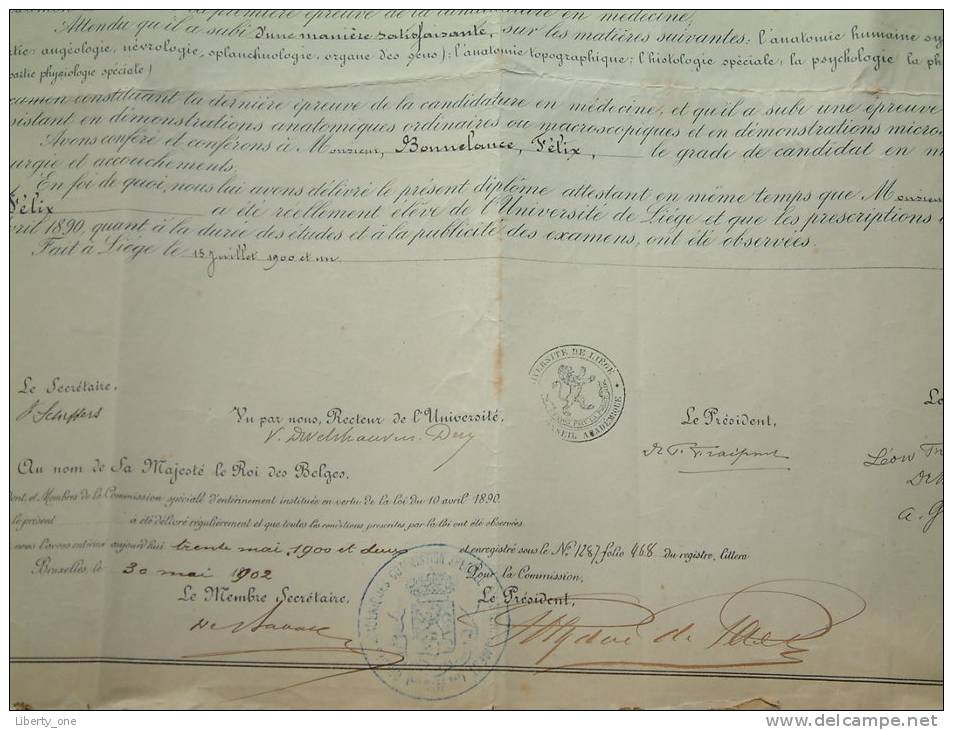 la première épreuve de la candidature en médecine,
Attendu qu'il a subi d'une manière satisfaisante, sur les matières suivantes: l'anatomie humaine sy
tie: angéologie, névrologie, splanchnologie, organe des sens); l'anatomie topographique; l'histologie spéciale, la psychologie la ph
partie physiologie spéciale)
examen constituant la dernière épreuve de la candidature en médecine, et qu'il a subi une épreuve
sistant en démonstrations anatomiques ordinaires ou macroscopiques et en démonstrations micro-
Avons conféré et conférons à Monsieur, Bonnelance, Félix, le grade de candidat en m
urgie et accouchements.
En foi de quoi, nous lui avons délivré le présent diplôme attestant en même temps que Monsieur
Félix a été réellement élève de l'Université de Liège et que les prescriptions
vril 1890, quant à la durée des études et à la publicité des examens, ont été observées.
Fait à Liège le 15 juillet 1900 et un.
VERSITÉ DE LIÈGE
CONSEIL ACADÉMIQUE
Le Secrétaire,
Vu par nous, Recteur de l'Université,
Le Président,
Le
Léon
Au nom de Sa Majesté le Roi des Belges.
dent, et Membres de la Commission spéciale d'entérinement instituée en vertu de la loi du 10 avril 1890.
le présent a été délivré régulièrement et que toutes les conditions prescrites par la loi ont été observées
nous l'avons entériné aujourd'hui trente mai, 1900 et deux et enregistré sous le N° 1287 folio 468 du registre, littera
Bruxelles, le 30 mai 1902 Pour la Commission,
Le Membre Secrétaire, Le Président,
Liberty_one
www.delcampe.net